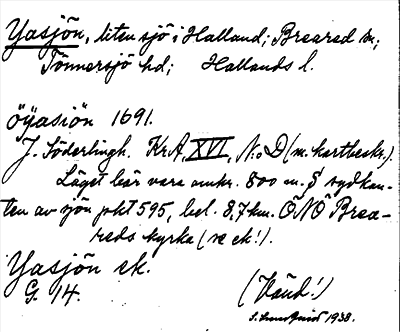 Yasjön, liten sjö i Halland; Breared sn;
Tönnersjö hd; Hallands l.
Öÿasiön 1691.
J. Söderlingh. Kr.A, XVI, N:o D (m. kartbeskr.).
Läget bör vara omkr. 800 m. S sydkan-
ten av sjön pkt 595, bel. 8,7 km. ÖNÖ Brea-
reds kyrka (se ek!).
Yasjön ek.
G. 14.
(Vänd!)
1938.